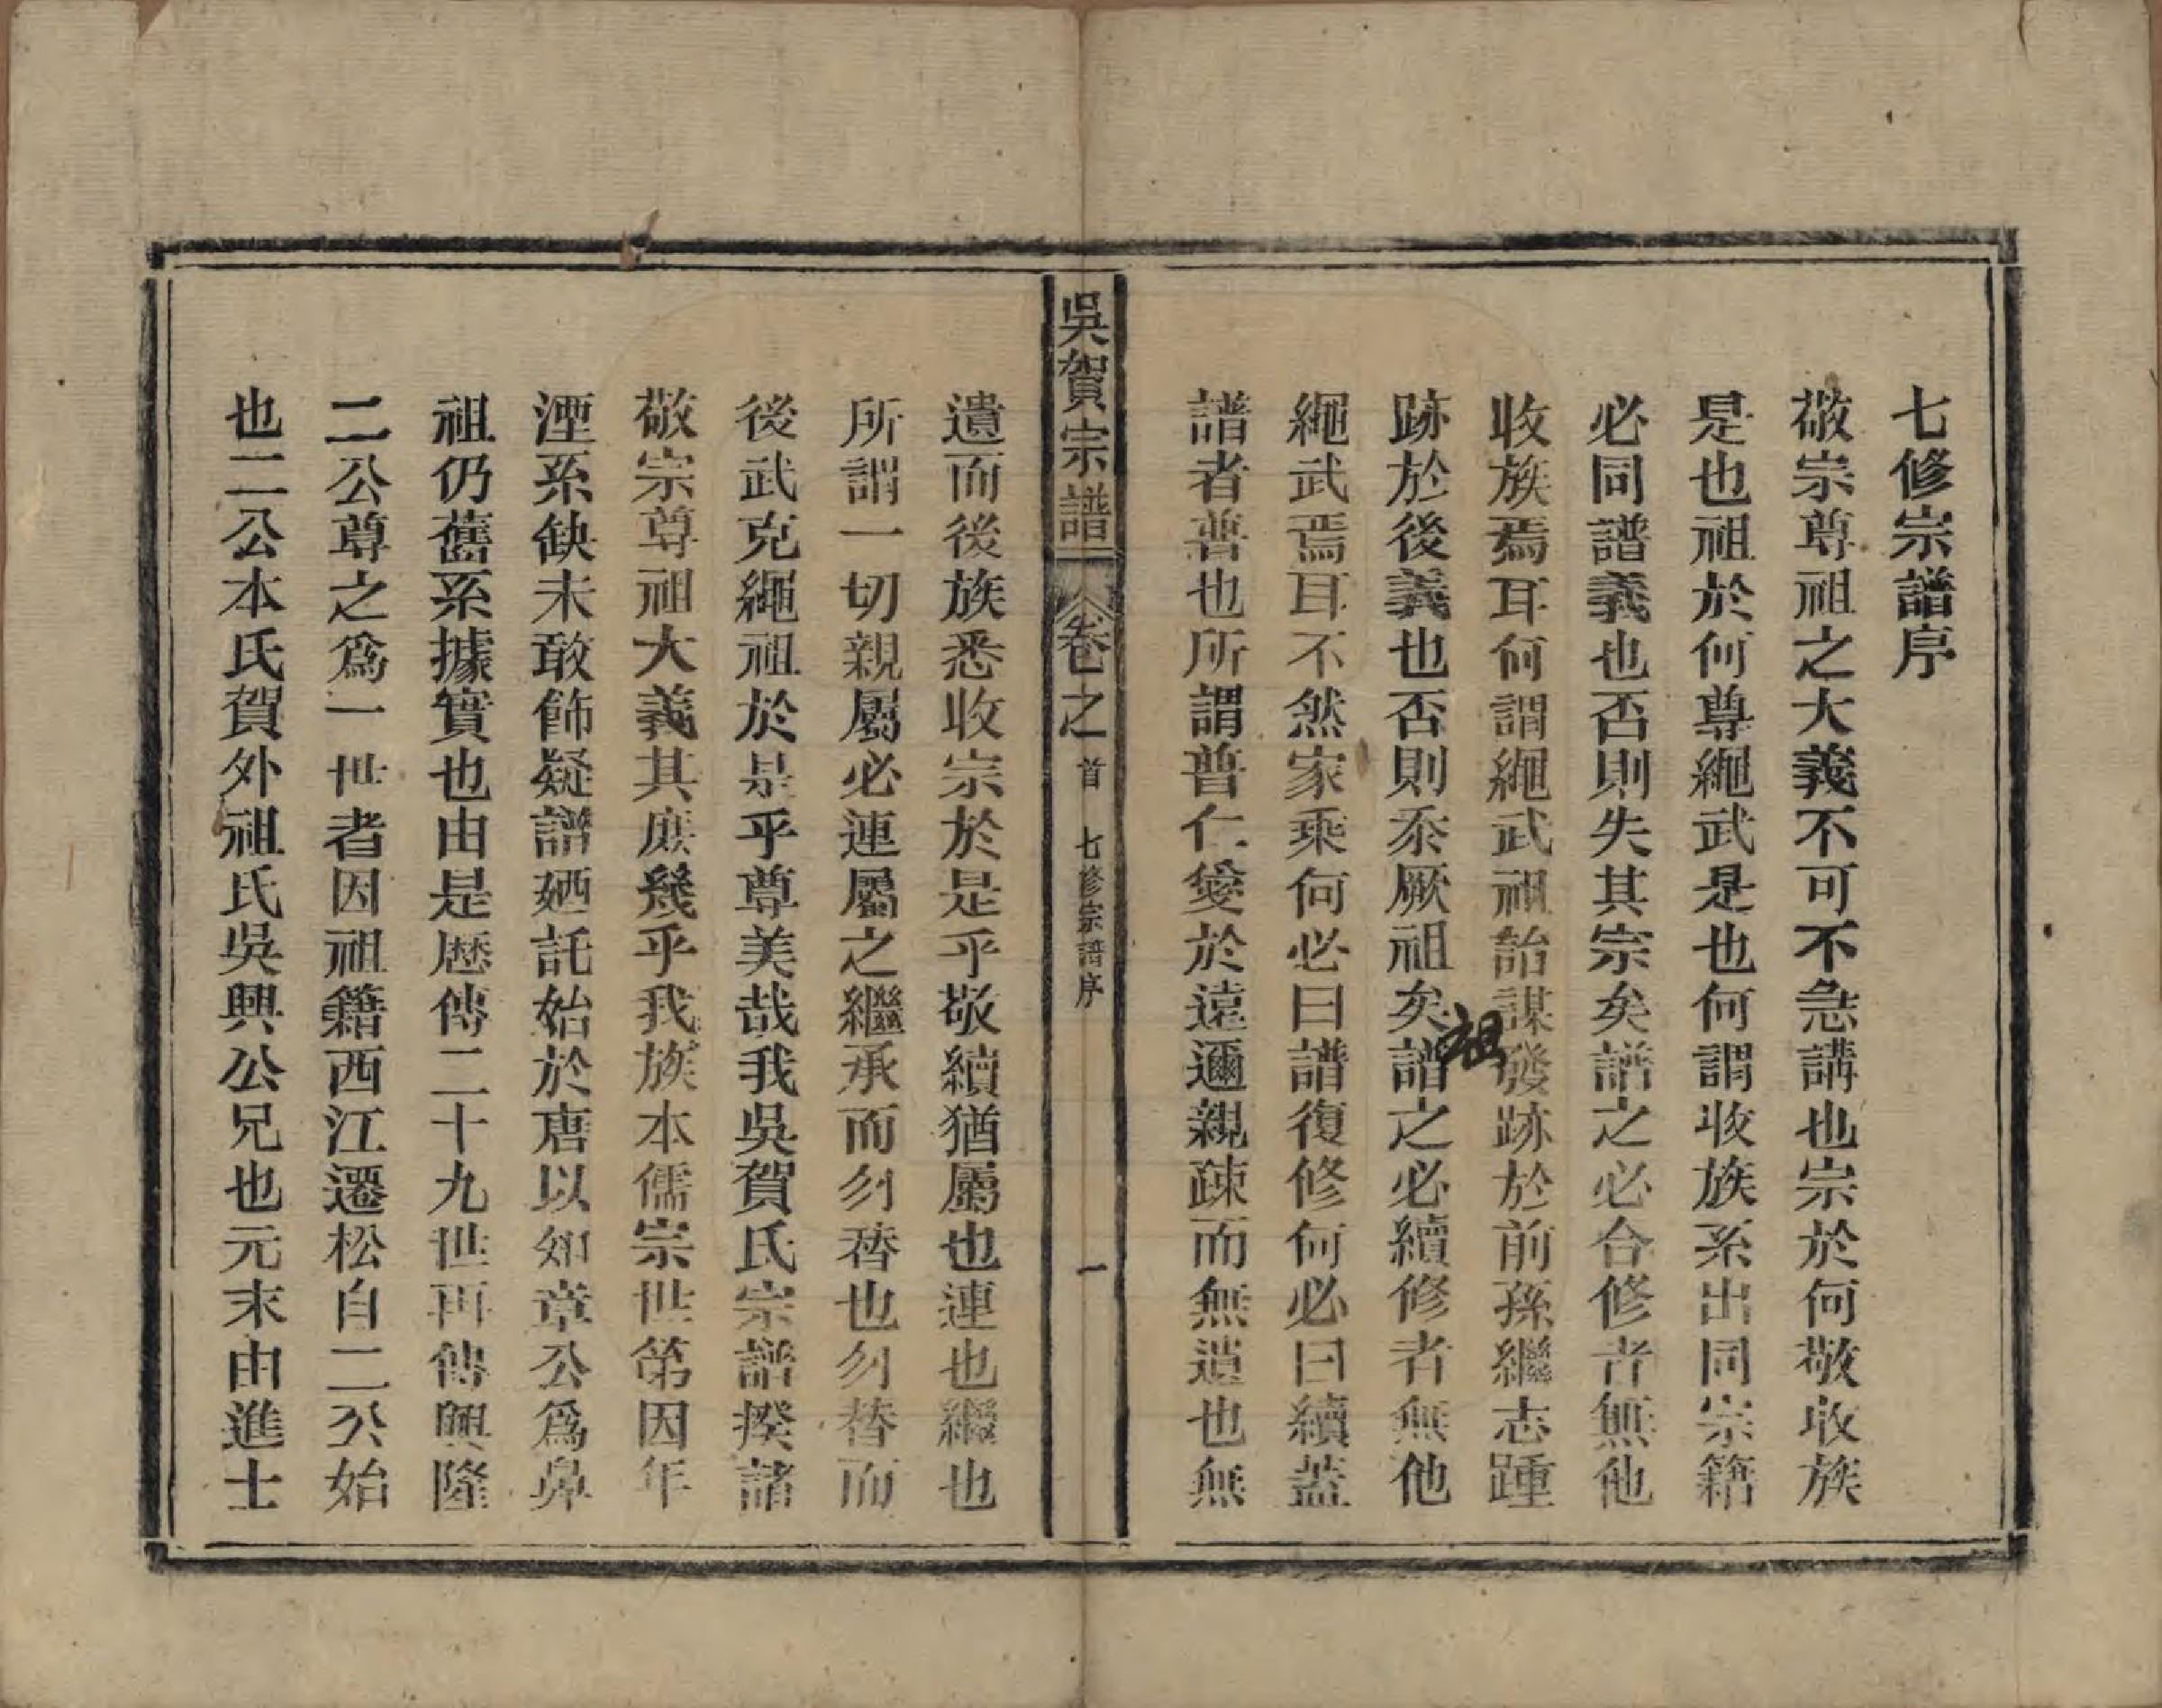 七修宗譜序
敬宗尊祖之大義不可不急講也宗於何敬收族
是也祖於何尊繩武是也何謂收族系出同宗籍
必同譜義也否則失其宗矣譜之必合修者無他
收族焉耳何謂繩武祖詒謀發跡於前孫繼志踵
祖
跡於後義也否則忝厥祖矣譜之必續修者無他
繩武焉耳不然家乘何必曰譜復修何必曰續蓋
譜者普也所謂普仁愛於遠邇親疎而無遺也無
吳賀宗譜 卷之首 七修宗譜序 一
遺而後族悉收宗於是乎敬續猶屬也連也繼也
所謂一切親屬必連屬之繼承而勿替也勿替而
後武克繩祖於是乎尊美哉我吳賀氏宗譜揆諸
敬宗尊祖大義其庶幾乎我族本儒宗世第因年
湮系缺未敢飾疑譜廼託始於唐以如章公爲鼻
祖仍舊系據實也由是歷傳二十九世再傳興隆
二公尊之爲一世者因祖籍西江遷松自二公始
也二公本氏賀外祖氏吳興公兄也元末由進士